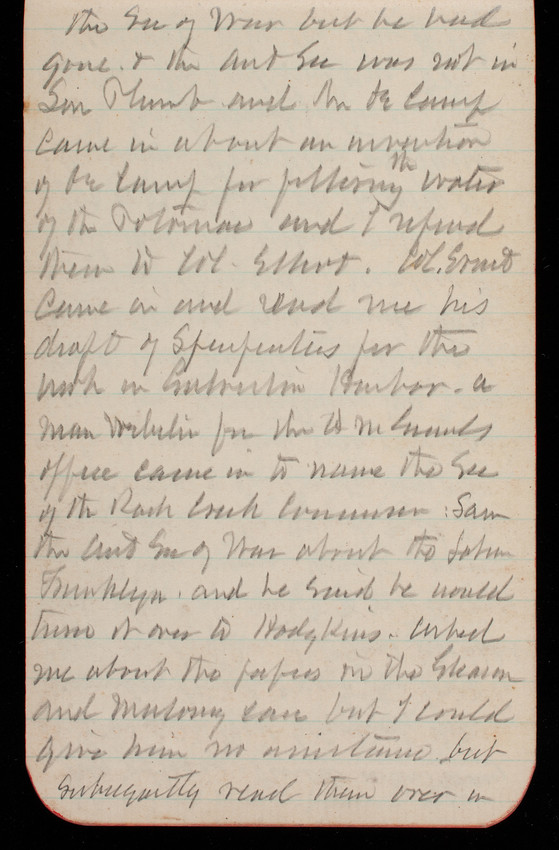 the Sec of War but he had
gone. & the Asst Sec was not in
Sen Plumb and Mr De Camp
came in about an invention
of De Camp for filtering the water
of the Potomac and I referred
them to Col. Elliot. Col. Ernst
came in and read me his
draft of Specificatis for the
work in Galveston Harbor. a
man from the Q M Genrls
office came in to name the Sec
of the Rock Creek Commission: Saw
the Asst Sec of War about the John
Franklyn. and he said he would
turn it over to Hodgkins. asked
me about the papers in the Gleason
and Malony case but I could
give him no assistance but
subseqently read them over in